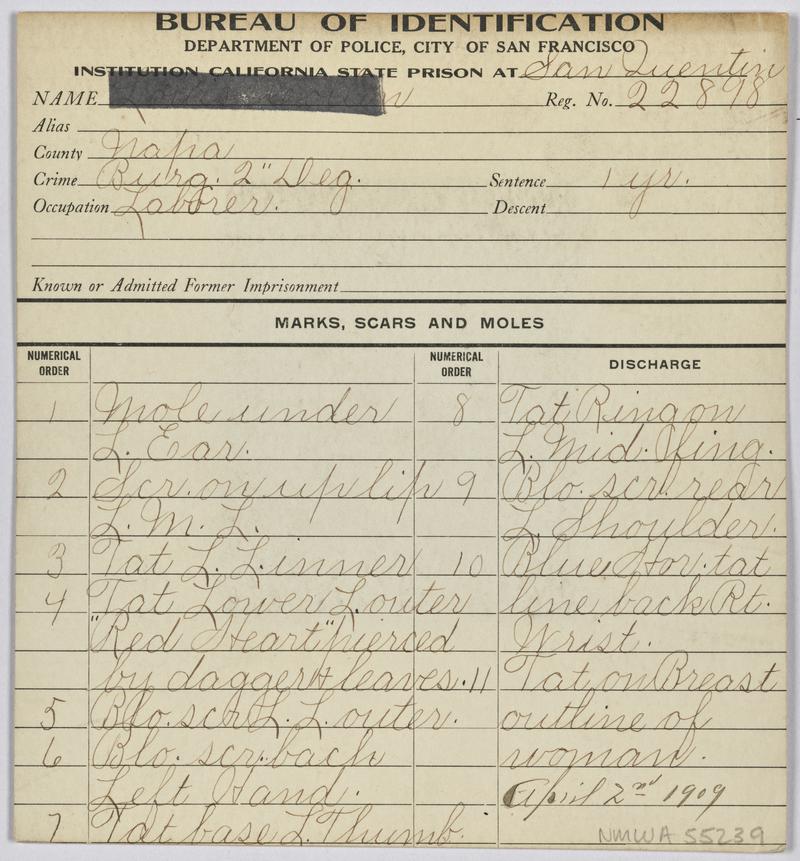 BUREAU OF IDENTIFICATION
DEPARTMENT OF POLICE, CITY OF SAN FRANCISCO
INSTITUTION CALIFORNIA STATE PRISON AT San Quentin
NAME
Reg. No. 22898
Alias
County Napa
Crime Burg. 2" Deg.
Sentence 1 yr.
Occupation Laborer.
Descent
Known or Admitted Former Imprisonment
MARKS, SCARS AND MOLES
NUMERICAL ORDER
NUMERICAL ORDER
DISCHARGE
1 Mole under
L. Ear.
2 Scr. on up lip
L. M. L.
3 Tat L. L. inner
4 Tat Lower L. outer
"Red Heart" pierced
by dagger & leaves.
5 Blo. scr L. L. outer.
6 Blo. scr. back
Left Hand.
7 Tat base L. Thumb.
8 Tat Ring on
L. Mid. Fing.
9 Blo. scr. rear
L. Shoulder.
10 Blue Hor. tat
line back Rt.
Wrist.
11 Tat on Breast
outline of
woman.
April 2nd 1909
NMWA 55239